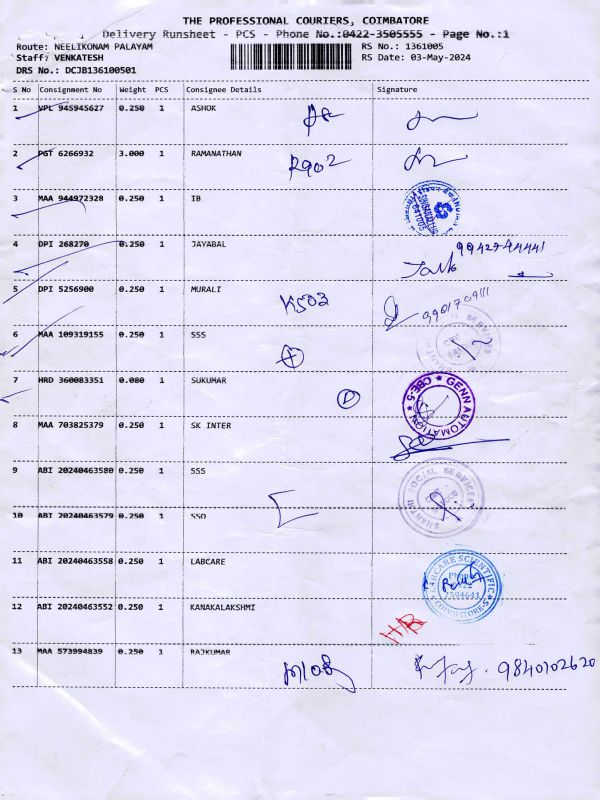 THE PROFESSIONAL COURIERS, COIMBATORE
Delivery Runsheet - PCS - Phone No.:0422-3505555 - Page No.:1
Route: NEELIKONAM PALAYAM RS No.: 1361005
Staff: VENKATESH RS Date: 03-May-2024
DRS No.: DCJB136100501
S No Consignment No Weight PCS Consignee Details Signature
1 VPL 945945627 0.250 1 ASHOK
2 PGT 6266932 3.000 1 RAMANATHAN R902
3 MAA 944972328 0.250 1 IB
4 DPI 268270 0.250 1 JAYABAL
5 DPI 5256900 0.250 1 MURALI K503
6 MAA 109319155 0.250 1 SSS
7 HRD 360083351 0.080 1 SUKUMAR D GENN AUTOMATION ★ CBE-5 ★
8 MAA 703825379 0.250 1 SK INTER
9 ABI 20240463580 0.250 1 SSS SHANTHI SOCIAL SERVICES
10 ABI 20240463579 0.250 1 SSO
11 ABI 20240463558 0.250 1 LABCARE LABCARE SCIENTIFIC COIMBATORE-5
12 ABI 20240463552 0.250 1 KANAKALAKSHMI HR
13 MAA 573994839 0.250 1 RAJKUMAR 9840102620